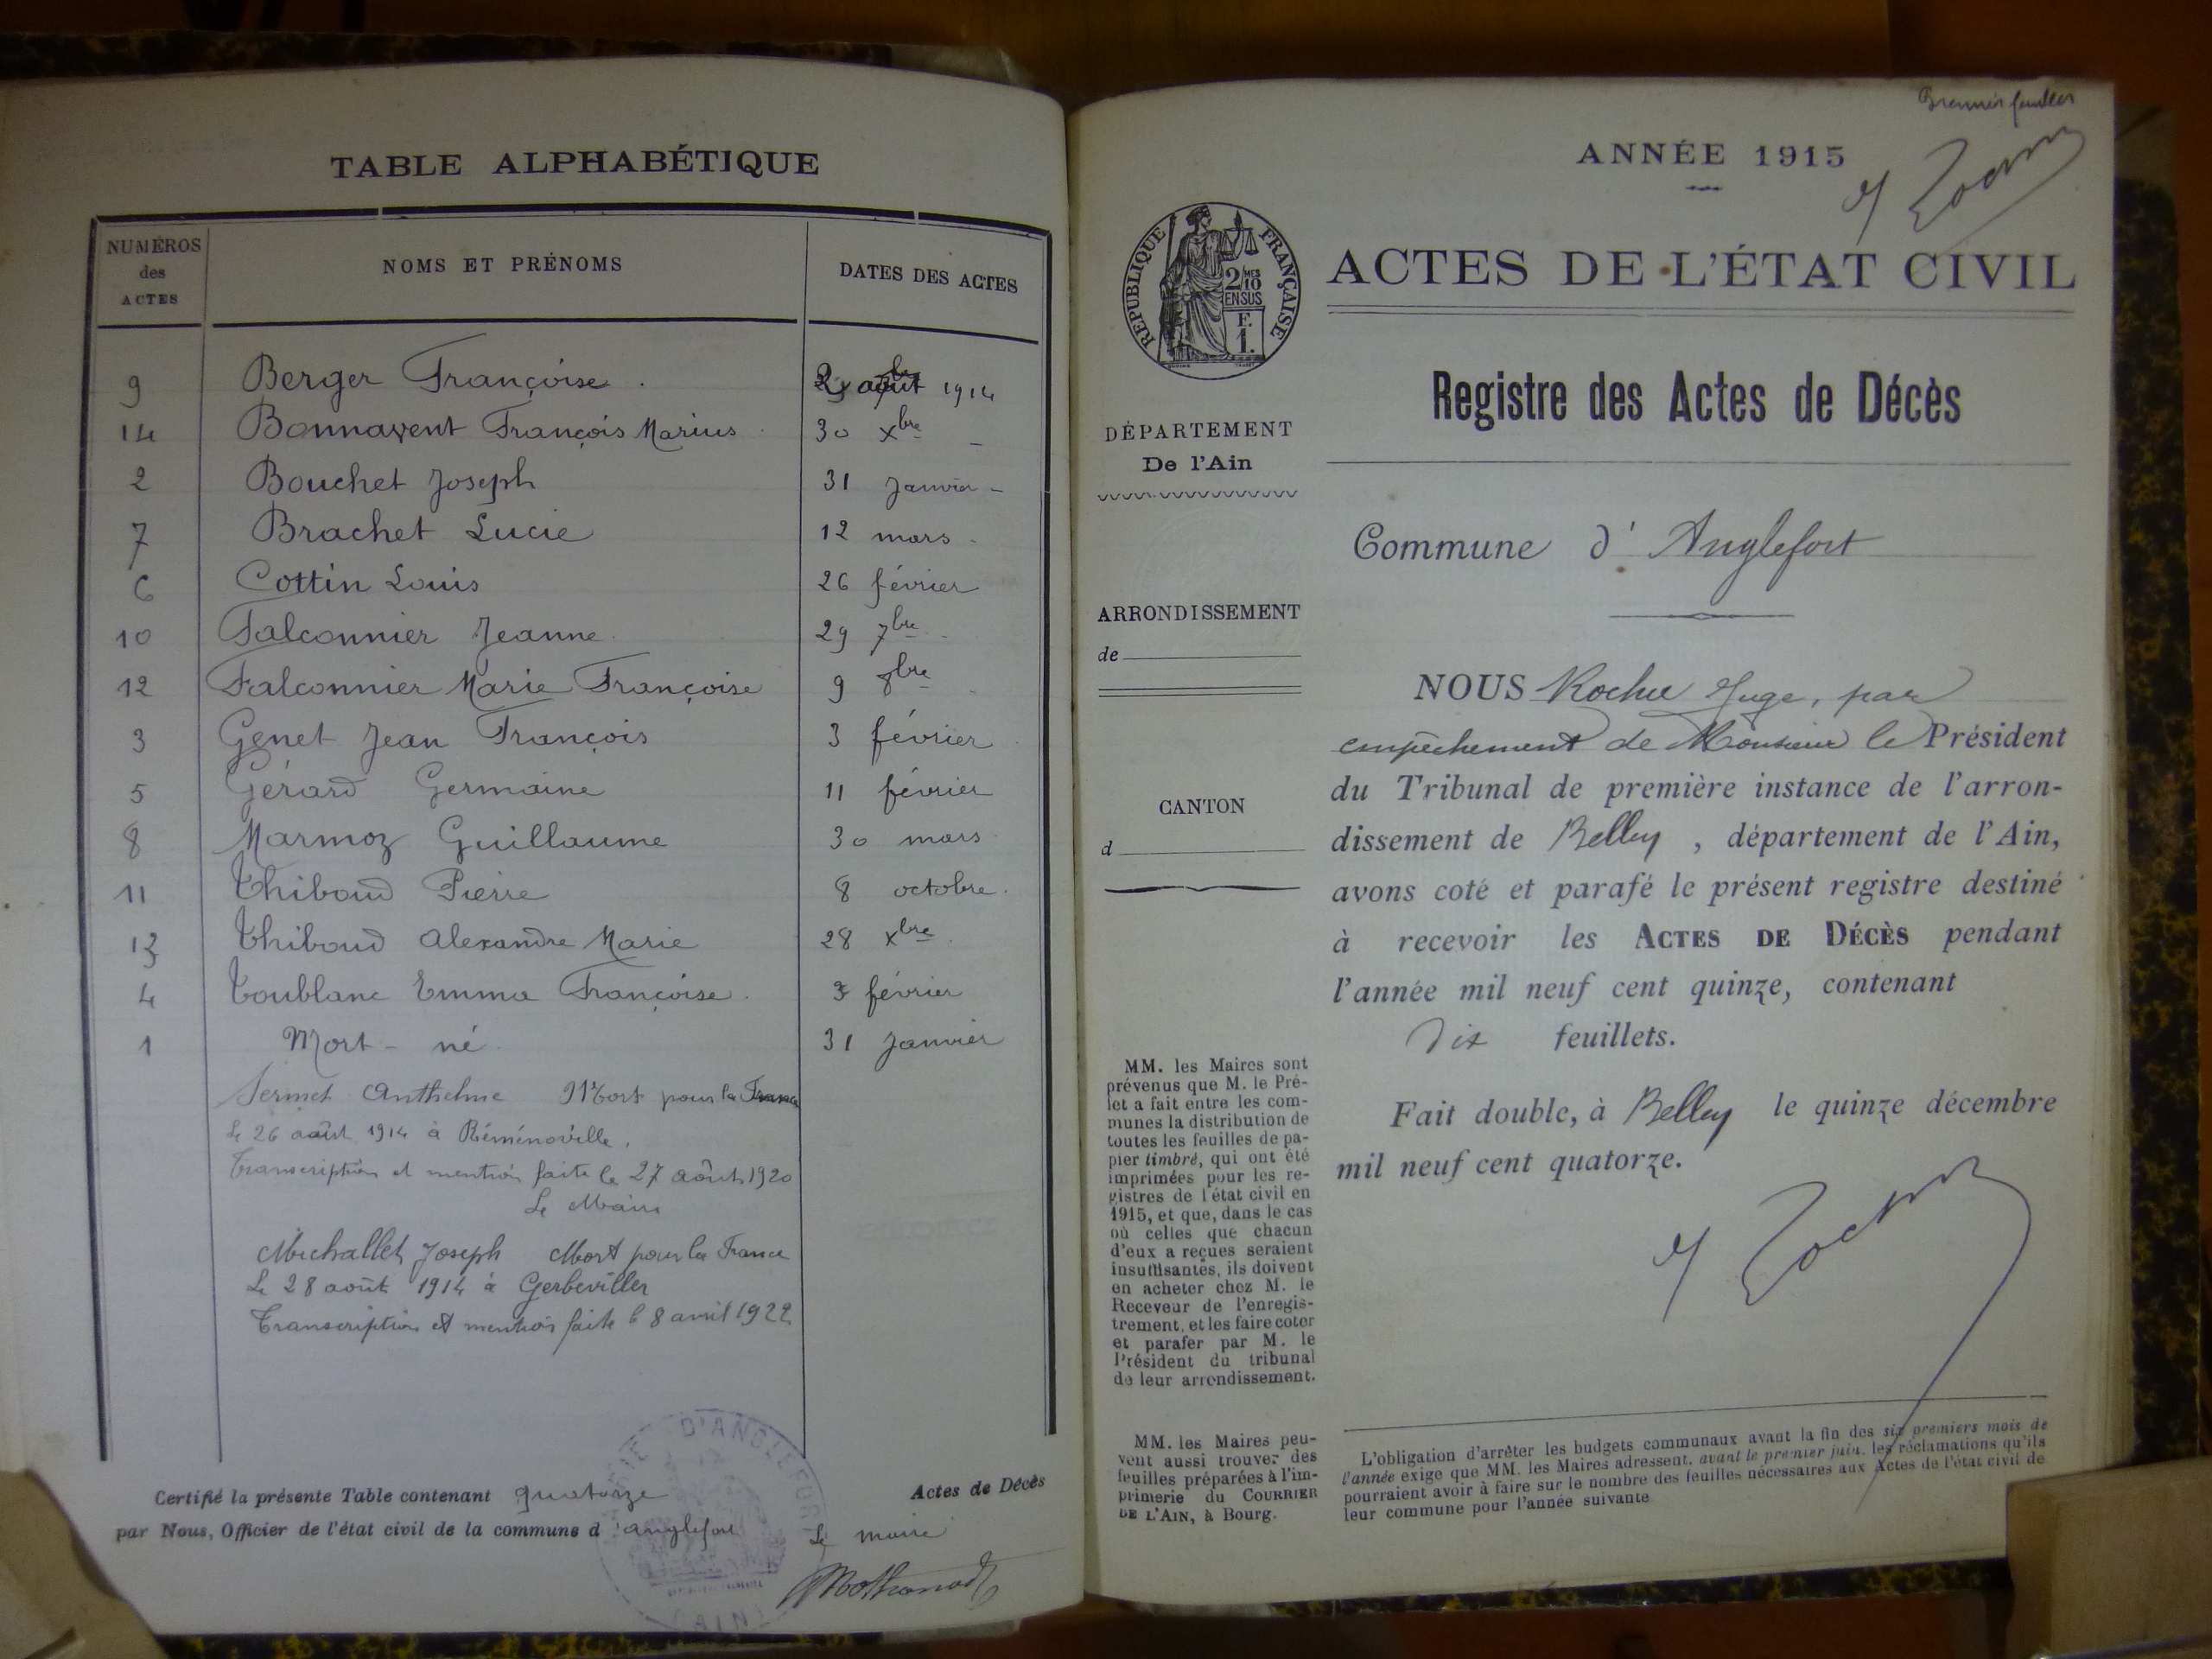 TABLE ALPHABÉTIQUE
NUMÉROS des ACTES NOMS ET PRÉNOMS DATES DES ACTES
9 Berger Françoise 1914
14 Bonnavent François Marius 30 Xbre -
2 Bouchet Joseph 31 Janvier -
7 Brachet Lucie 12 mars -
6 Cottin Louis 26 février
10 Falconnier Jeanne 29 7bre -
12 Falconnier Marie Françoise 9 8bre -
3 Genet Jean François 3 février
5 Gérard Germaine 11 février
8 Marmoz Guillaume 30 mars
11 Thiboud Pierre 8 octobre
13 Thiboud Alexandre Marie 28 Xbre
4 Toublanc Emma Françoise février
1 Mort-né 31 Janvier
Sermet Anthelme Mort pour la France
Le 26 août 1914 à Réménoville,
Transcription et mention faite le 27 août 1920
Le Maire
Michallet Joseph Mort pour la France
Le 28 août 1914 à Gerbeviller
Transcription et mention faite le 8 avril 1922
Certifié la présente Table contenant quatorze Actes de Décès
par Nous, Officier de l'état civil de la commune d'Anglefort Le maire
MAIRIE D'ANGLEFORT
(AIN)
Premier feuillet
ANNÉE 1915
RÉPUBLIQUE FRANÇAISE
2/10 MES
EN SUS
F.
1.
ACTES DE L'ÉTAT CIVIL
Registre des Actes de Décès
DÉPARTEMENT
De l'Ain
Commune d'Anglefort
ARRONDISSEMENT
de
CANTON
d
NOUS Roche Juge, par
empêchement de Monsieur le Président
du Tribunal de première instance de l'arron-
dissement de Belley, département de l'Ain,
avons coté et parafé le présent registre destiné
à recevoir les ACTES DE DÉCÈS pendant
l'année mil neuf cent quinze, contenant
Dix feuillets.
Fait double, à Belley le quinze décembre
mil neuf cent quatorze.
MM. les Maires sont
prévenus que M. le Pré-
fet a fait entre les com-
munes la distribution de
toutes les feuilles de pa-
pier timbré, qui ont été
imprimées pour les re-
gistres de l'état civil en
1915, et que, dans le cas
où celles que chacun
d'eux a reçues seraient
insuffisantes, ils doivent
en acheter chez M. le
Receveur de l'enregis-
trement, et les faire coter
et parafer par M. le
Président du tribunal
de leur arrondissement.
MM. les Maires peu-
vent aussi trouver des
feuilles préparées à l'im-
primerie du COURRIER
DE L'AIN, à Bourg.
L'obligation d'arrêter les budgets communaux avant la fin des six premiers mois de
l'année exige que MM. les Maires adressent, avant le premier juin, les réclamations qu'ils
pourraient avoir à faire sur le nombre des feuilles nécessaires aux Actes de l'état civil de
leur commune pour l'année suivante